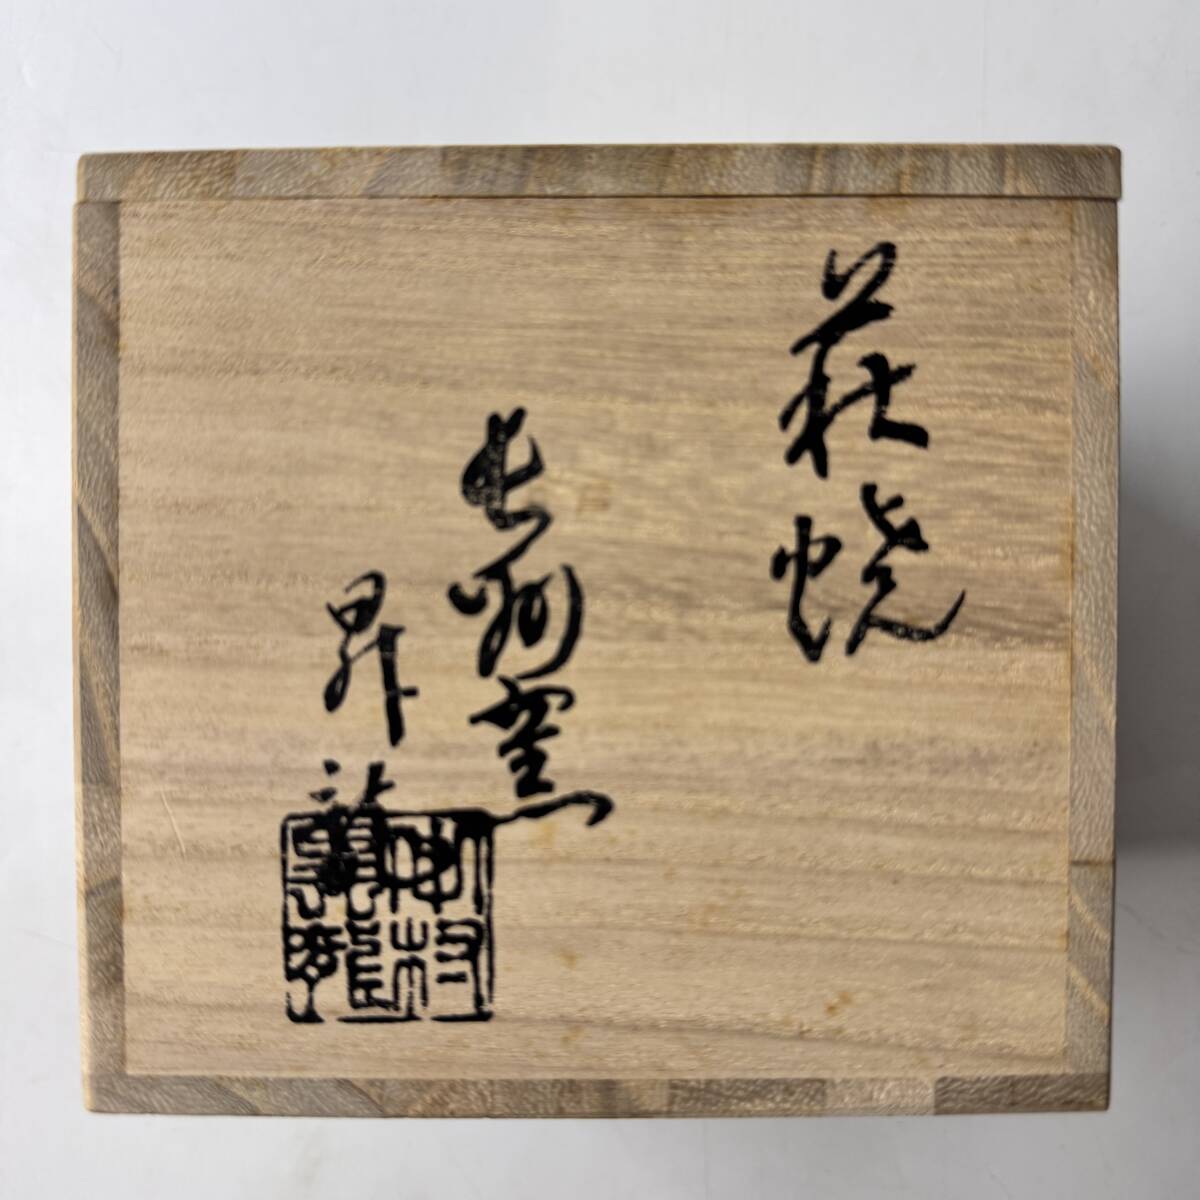 萩焼
長州窯
昇龍